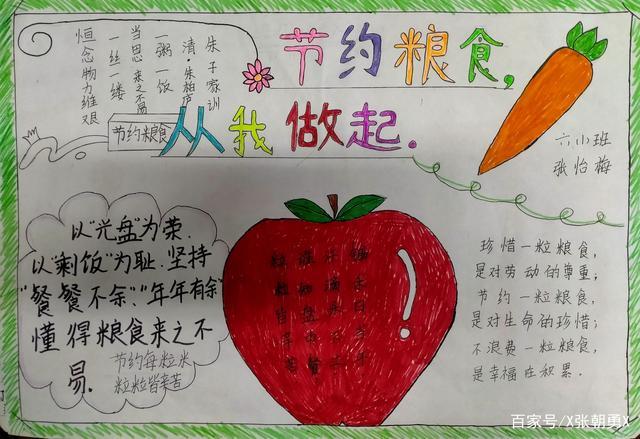 节约粮食,
从我做起.
朱子家训
清·朱柏庐
一粥一饭
当思来之不易
一丝一缕
恒念物力维艰
节约粮食
六小班
张怡梅
以"光盘"为荣.
以"剩饭"为耻.坚持
"餐餐不余"、"年年有余"
懂得粮食来之不
易.
节约每粒米
粒粒皆辛苦
锄禾日当午
汗滴禾下土
谁知盘中餐
粒粒皆辛苦
珍惜一粒粮食,
是对劳动的尊重;
节约一粒粮食,
是对生命的珍惜;
不浪费一粒粮食,
是幸福在积累.
百家号/X张朝勇X